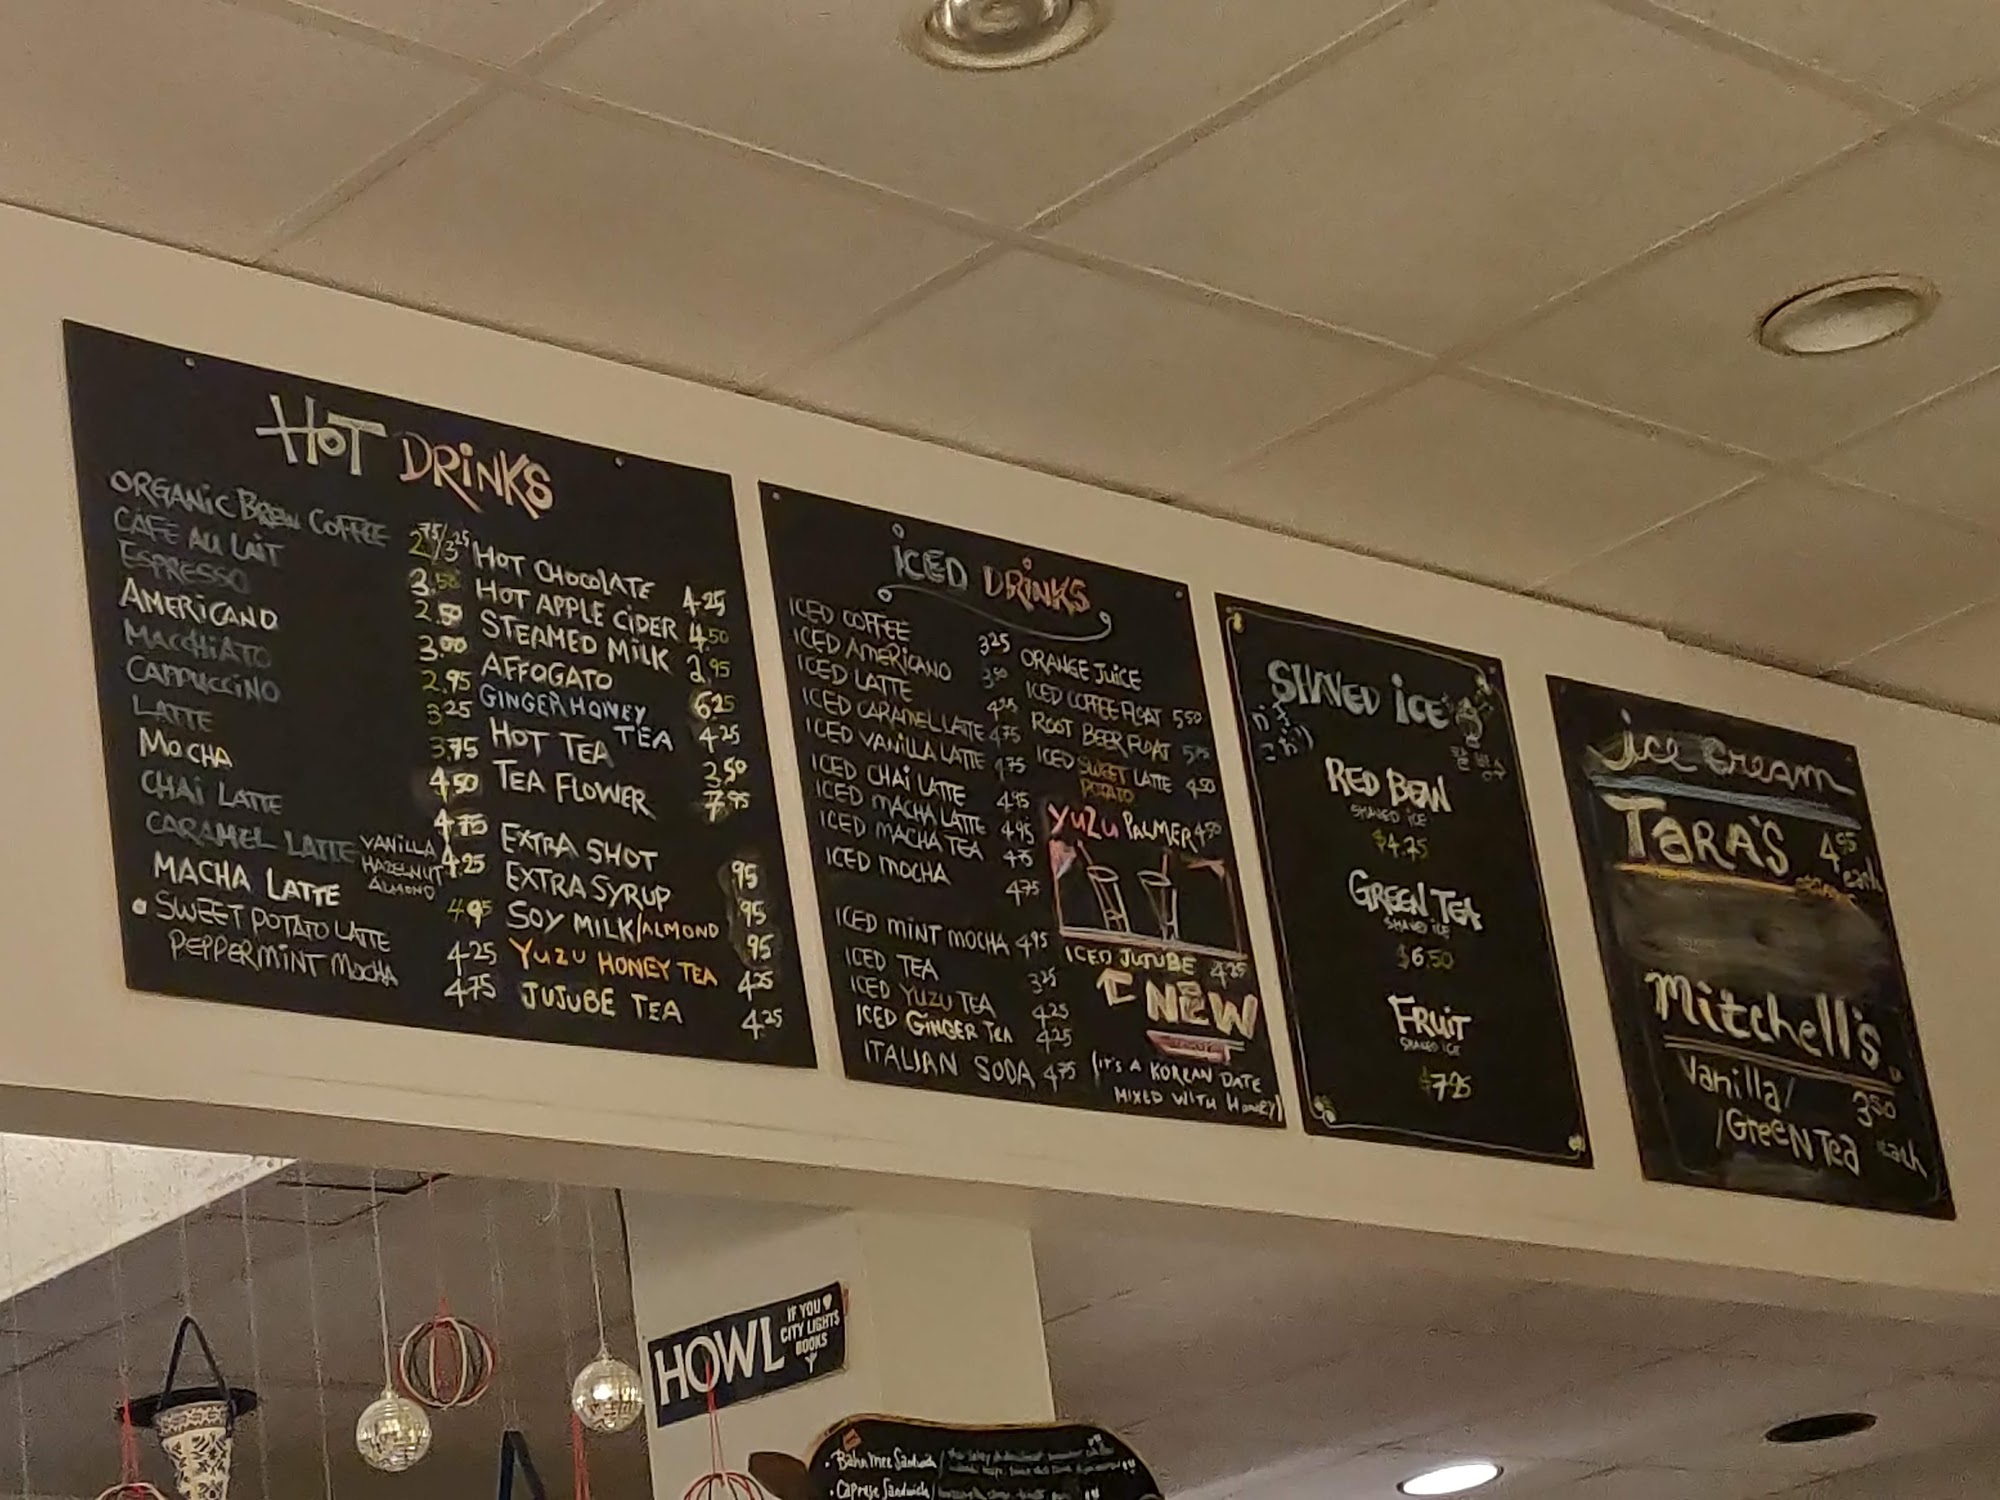 HOT DRINKS
ORGANIC BREW COFFEE 2.75/3.25
CAFE AU LAIT 3.50
ESPRESSO 2.50
AMERICANO 3.00
MACCHIATO 2.95
CAPPUCCINO 3.25
LATTE 3.75
MOCHA 4.50
CHAI LATTE 4.75
CARAMEL LATTE VANILLA HAZELNUT ALMOND 4.25
MACHA LATTE 4.95
• SWEET POTATO LATTE 4.25
PEPPERMINT MOCHA 4.75
HOT CHOCOLATE 4.25
HOT APPLE CIDER 4.50
STEAMED MILK 2.95
AFFOGATO 6.25
GINGER HONEY TEA 4.25
HOT TEA 3.50
TEA FLOWER 7.95
EXTRA SHOT 95
EXTRA SYRUP 95
SOY MILK/ALMOND 95
YUZU HONEY TEA 4.25
JUJUBE TEA 4.25
ICED DRINKS
ICED COFFEE 3.25
ICED AMERICANO 3.50
ICED LATTE 4.25
ICED CARAMEL LATTE 4.75
ICED VANILLA LATTE 4.75
ICED CHAI LATTE 4.95
ICED MACHA LATTE 4.95
ICED MACHA TEA 4.75
ICED MOCHA 4.75
ICED MINT MOCHA 4.95
ICED TEA 3.25
ICED YUZU TEA 4.25
ICED GINGER TEA 4.25
ITALIAN SODA 4.75
ORANGE JUICE
ICED COFFEE FLOAT 5.50
ROOT BEER FLOAT
ICED SWEET POTATO LATTE 4.50
YUZU PALMER 4.50
ICED JUJUBE 4.25
NEW
(IT'S A KOREAN DATE
MIXED WITH HONEY)
SHAVED ICE
RED BEAN
SHAVED ICE
$4.75
GREEN TEA
SHAVED ICE
$6.50
FRUIT
SHAVED ICE
$7.25
Ice Cream
TARA'S 4.95 each
Mitchell's
Vanilla/ 3.50
/GREEN TEA each
HOWL
IF YOU
CITY LIGHTS
BOOKS
• Bahn mee Sandwich/
• Caprese Sandwich/